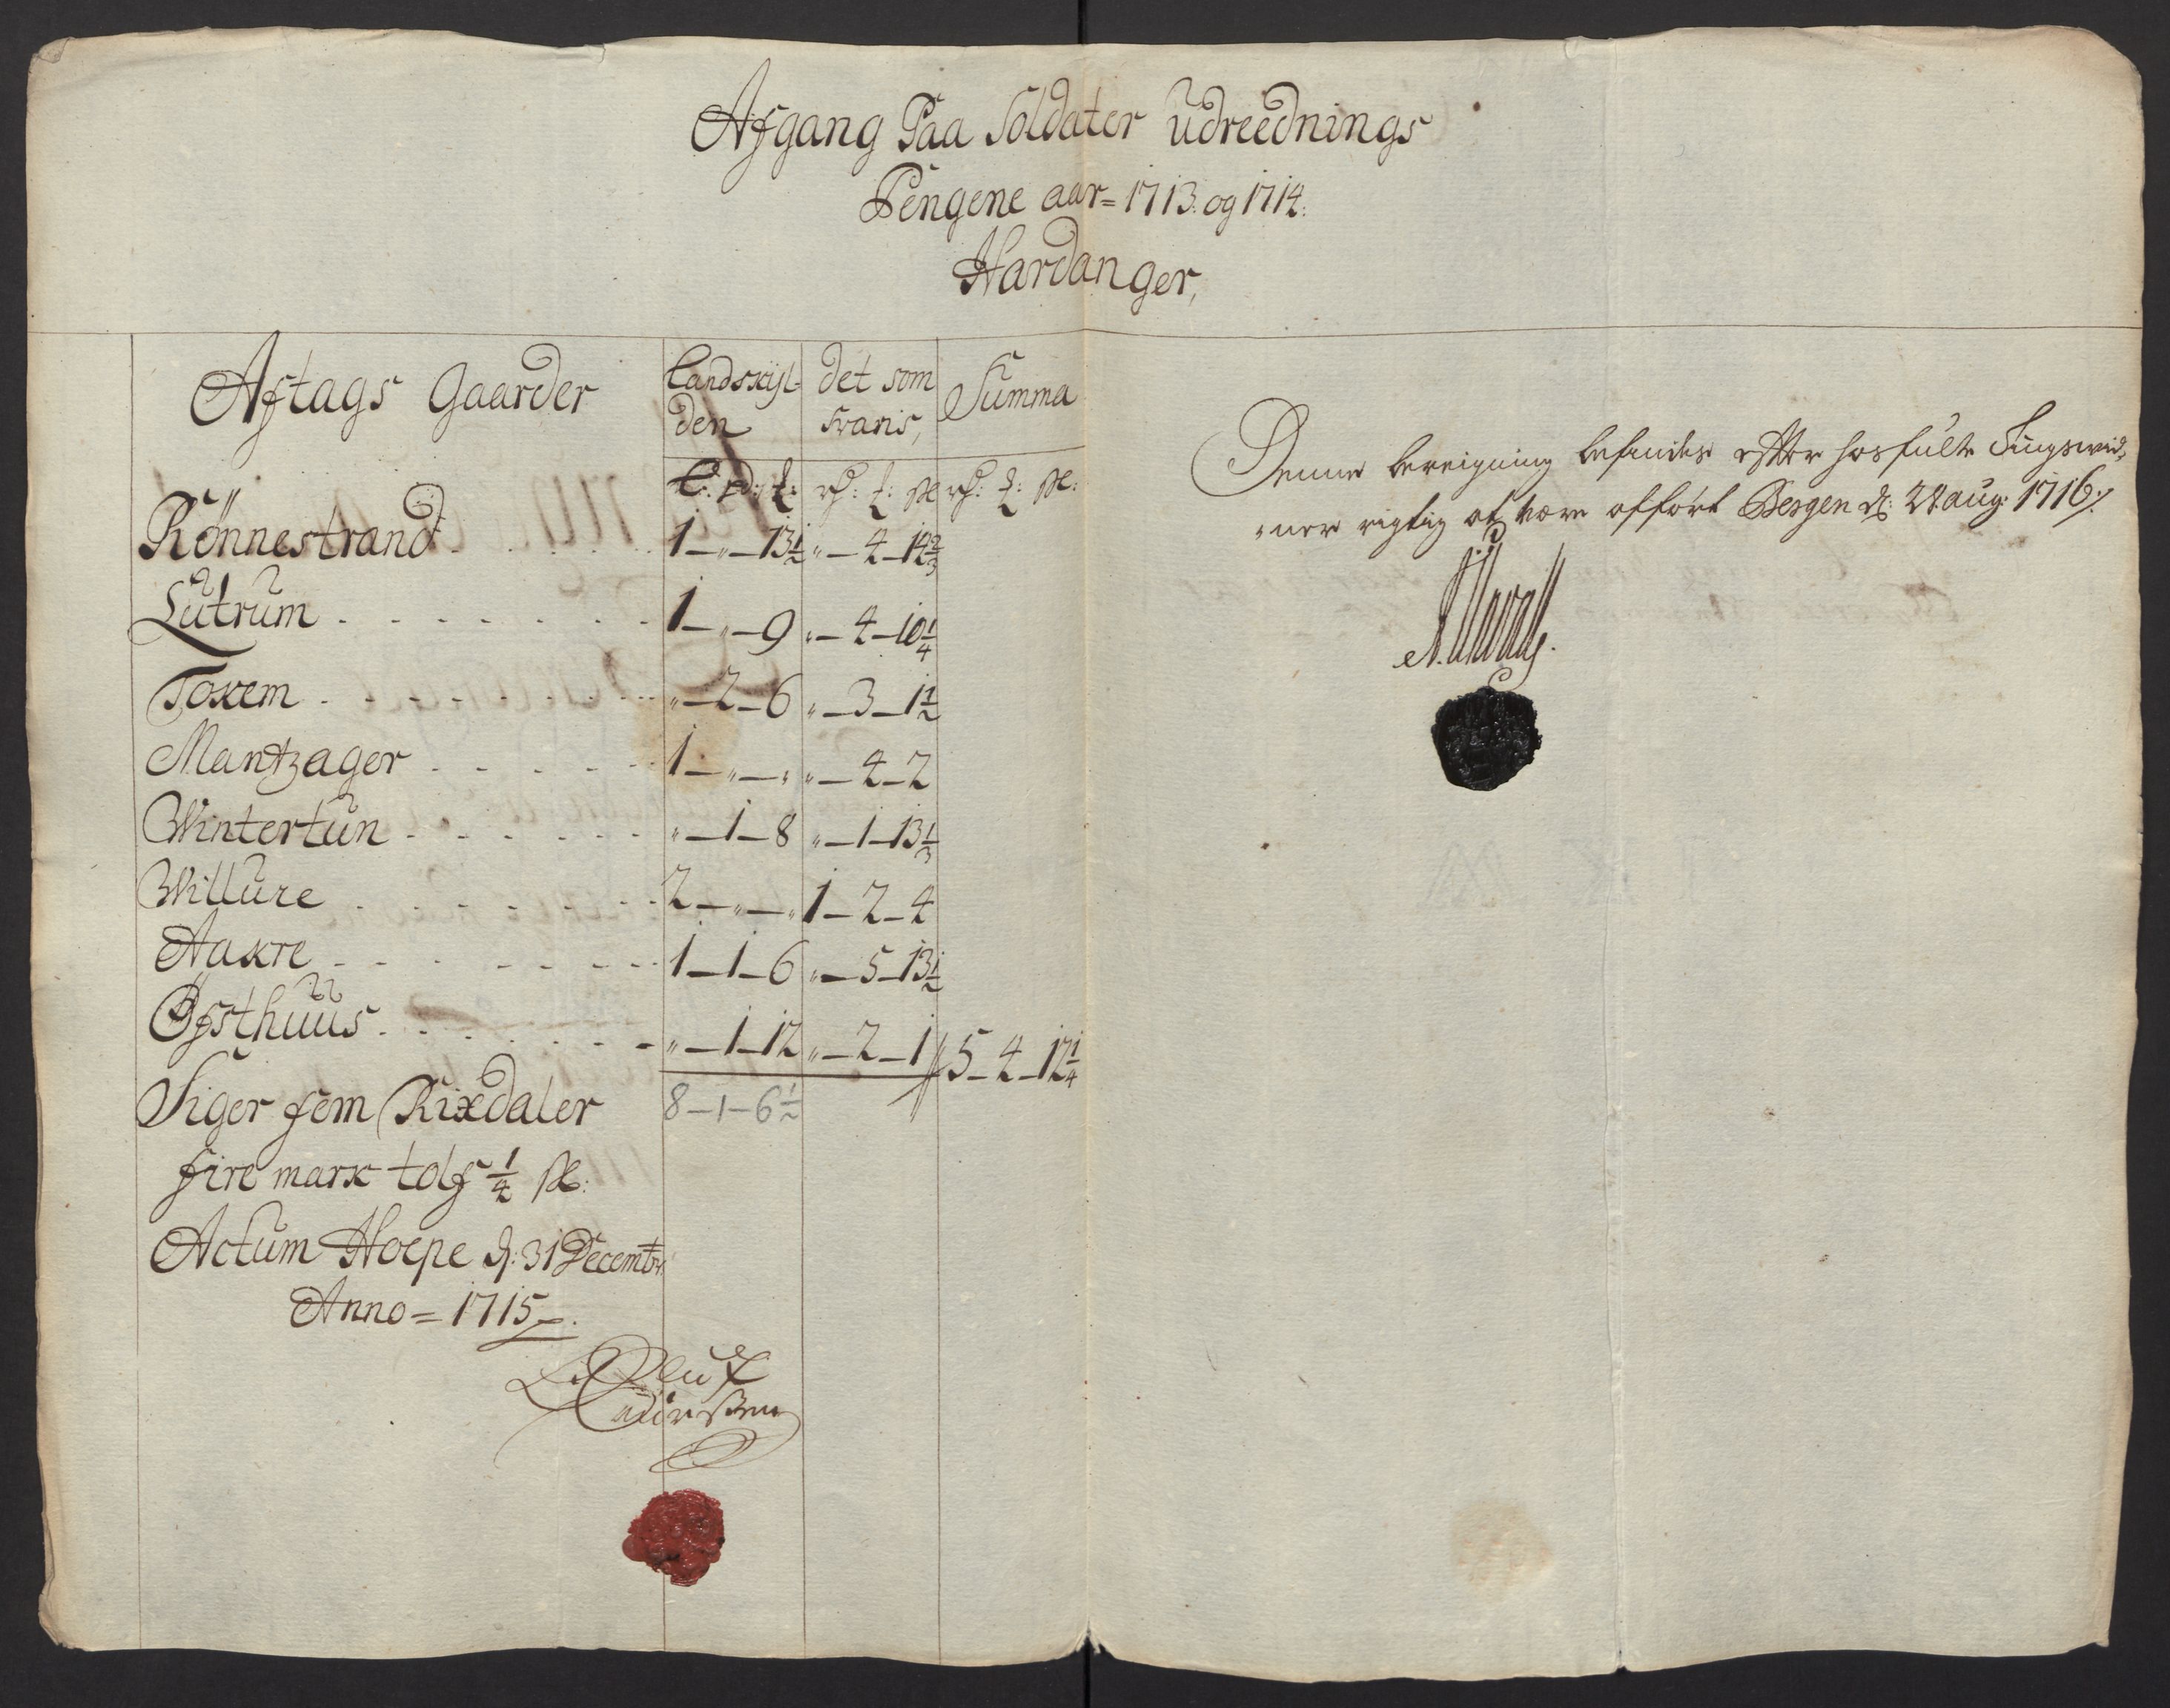 Afgang Paa Soldater udreednings
Pengene aar = 1713. og 1714:
Hardanger,
Aftags Gaarder
Landskyl=
den
det som
svaris,
Summa
L: pd: : rd: : ss rd: : ss:
Rönnestrand . . . . . 1 — „ — 13 1/2 „ — 4 — 14 2/3
Lutrum . . . . . . . 1 — „ — 9 „ — 4 — 10 1/4
Toxem . . . . . . . „ — 2 — 6 „ — 3 — 1 1/2
Mantzager . . . . . 1 — „ — „ „ — 4 — 2
Wintertun . . . . . . „ — 1 — 8 „ — 1 — 13 1/3
Willure . . . . . . . 2 — „ — „ 1 — 2 — 4
Aakre . . . . . . . 1 — 1 — 6 „ — 5 — 13 1/2
Øfsthuus . . . . . . . „ — 1 — 12 „ — 2 — 1 // 5 — 4 — 12 1/4
Siger fem Rixdaler 8 — 1 — 6 1/2
fire mark tolf 1/4 ss:
Actum Hoepe d: 31 Decembr:
Anno = 1715
Oluf
Laursen
Denne bereigning befindes efter hosfulte Tingswid,
„ner rigtig at være afført Bergen d: 28 aug: 1716